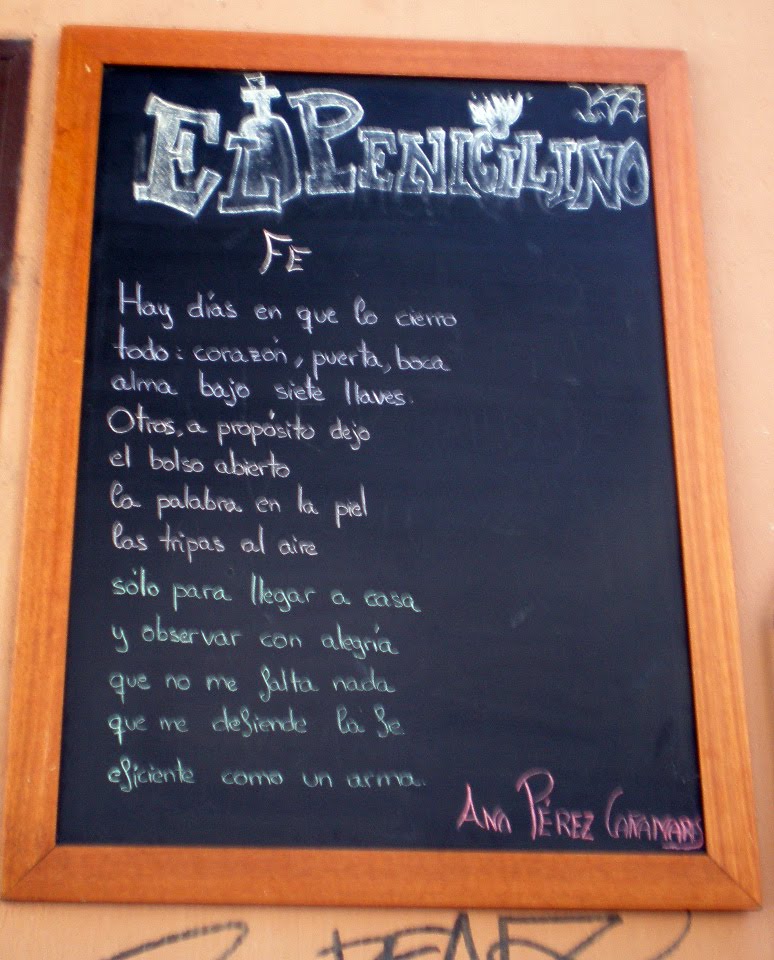 EL PENICILINO
FE
Hay días en que lo cierro
todo: corazón, puerta, boca
alma bajo siete llaves.
Otros, a propósito dejo
el bolso abierto
la palabra en la piel
las tripas al aire
sólo para llegar a casa
y observar con alegría
que no me falta nada
que me defiende la fe
eficiente como un arma.
ANA PÉREZ CAÑAMARES